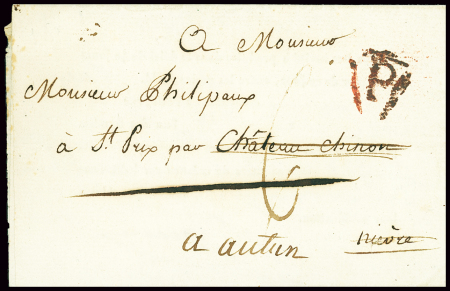 A Monsieur
P
Monsieur Philipaux
à St Prix par Château chinon
6
a autun nièvre